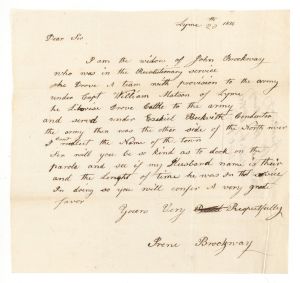 Lyme 20th 1836
Dear Sir
I am the widow of John Brockway
who was in the Revolutionary service
he Drove A team with provision to the army
under Capt William Matson of Lyme
he Likwise Drove Cattle to the army
and served under Ezekiel Beckwith Conductor
the army then was the other side of the North river
I can't recollect the Name of the town
Sir will you be so kind as to look on the
parole and see if my Husband name is thair
and the Lenght of time he was in the service
In doing so you will confer A very great
favor
Yours Very Respectfully
Irene Brockway